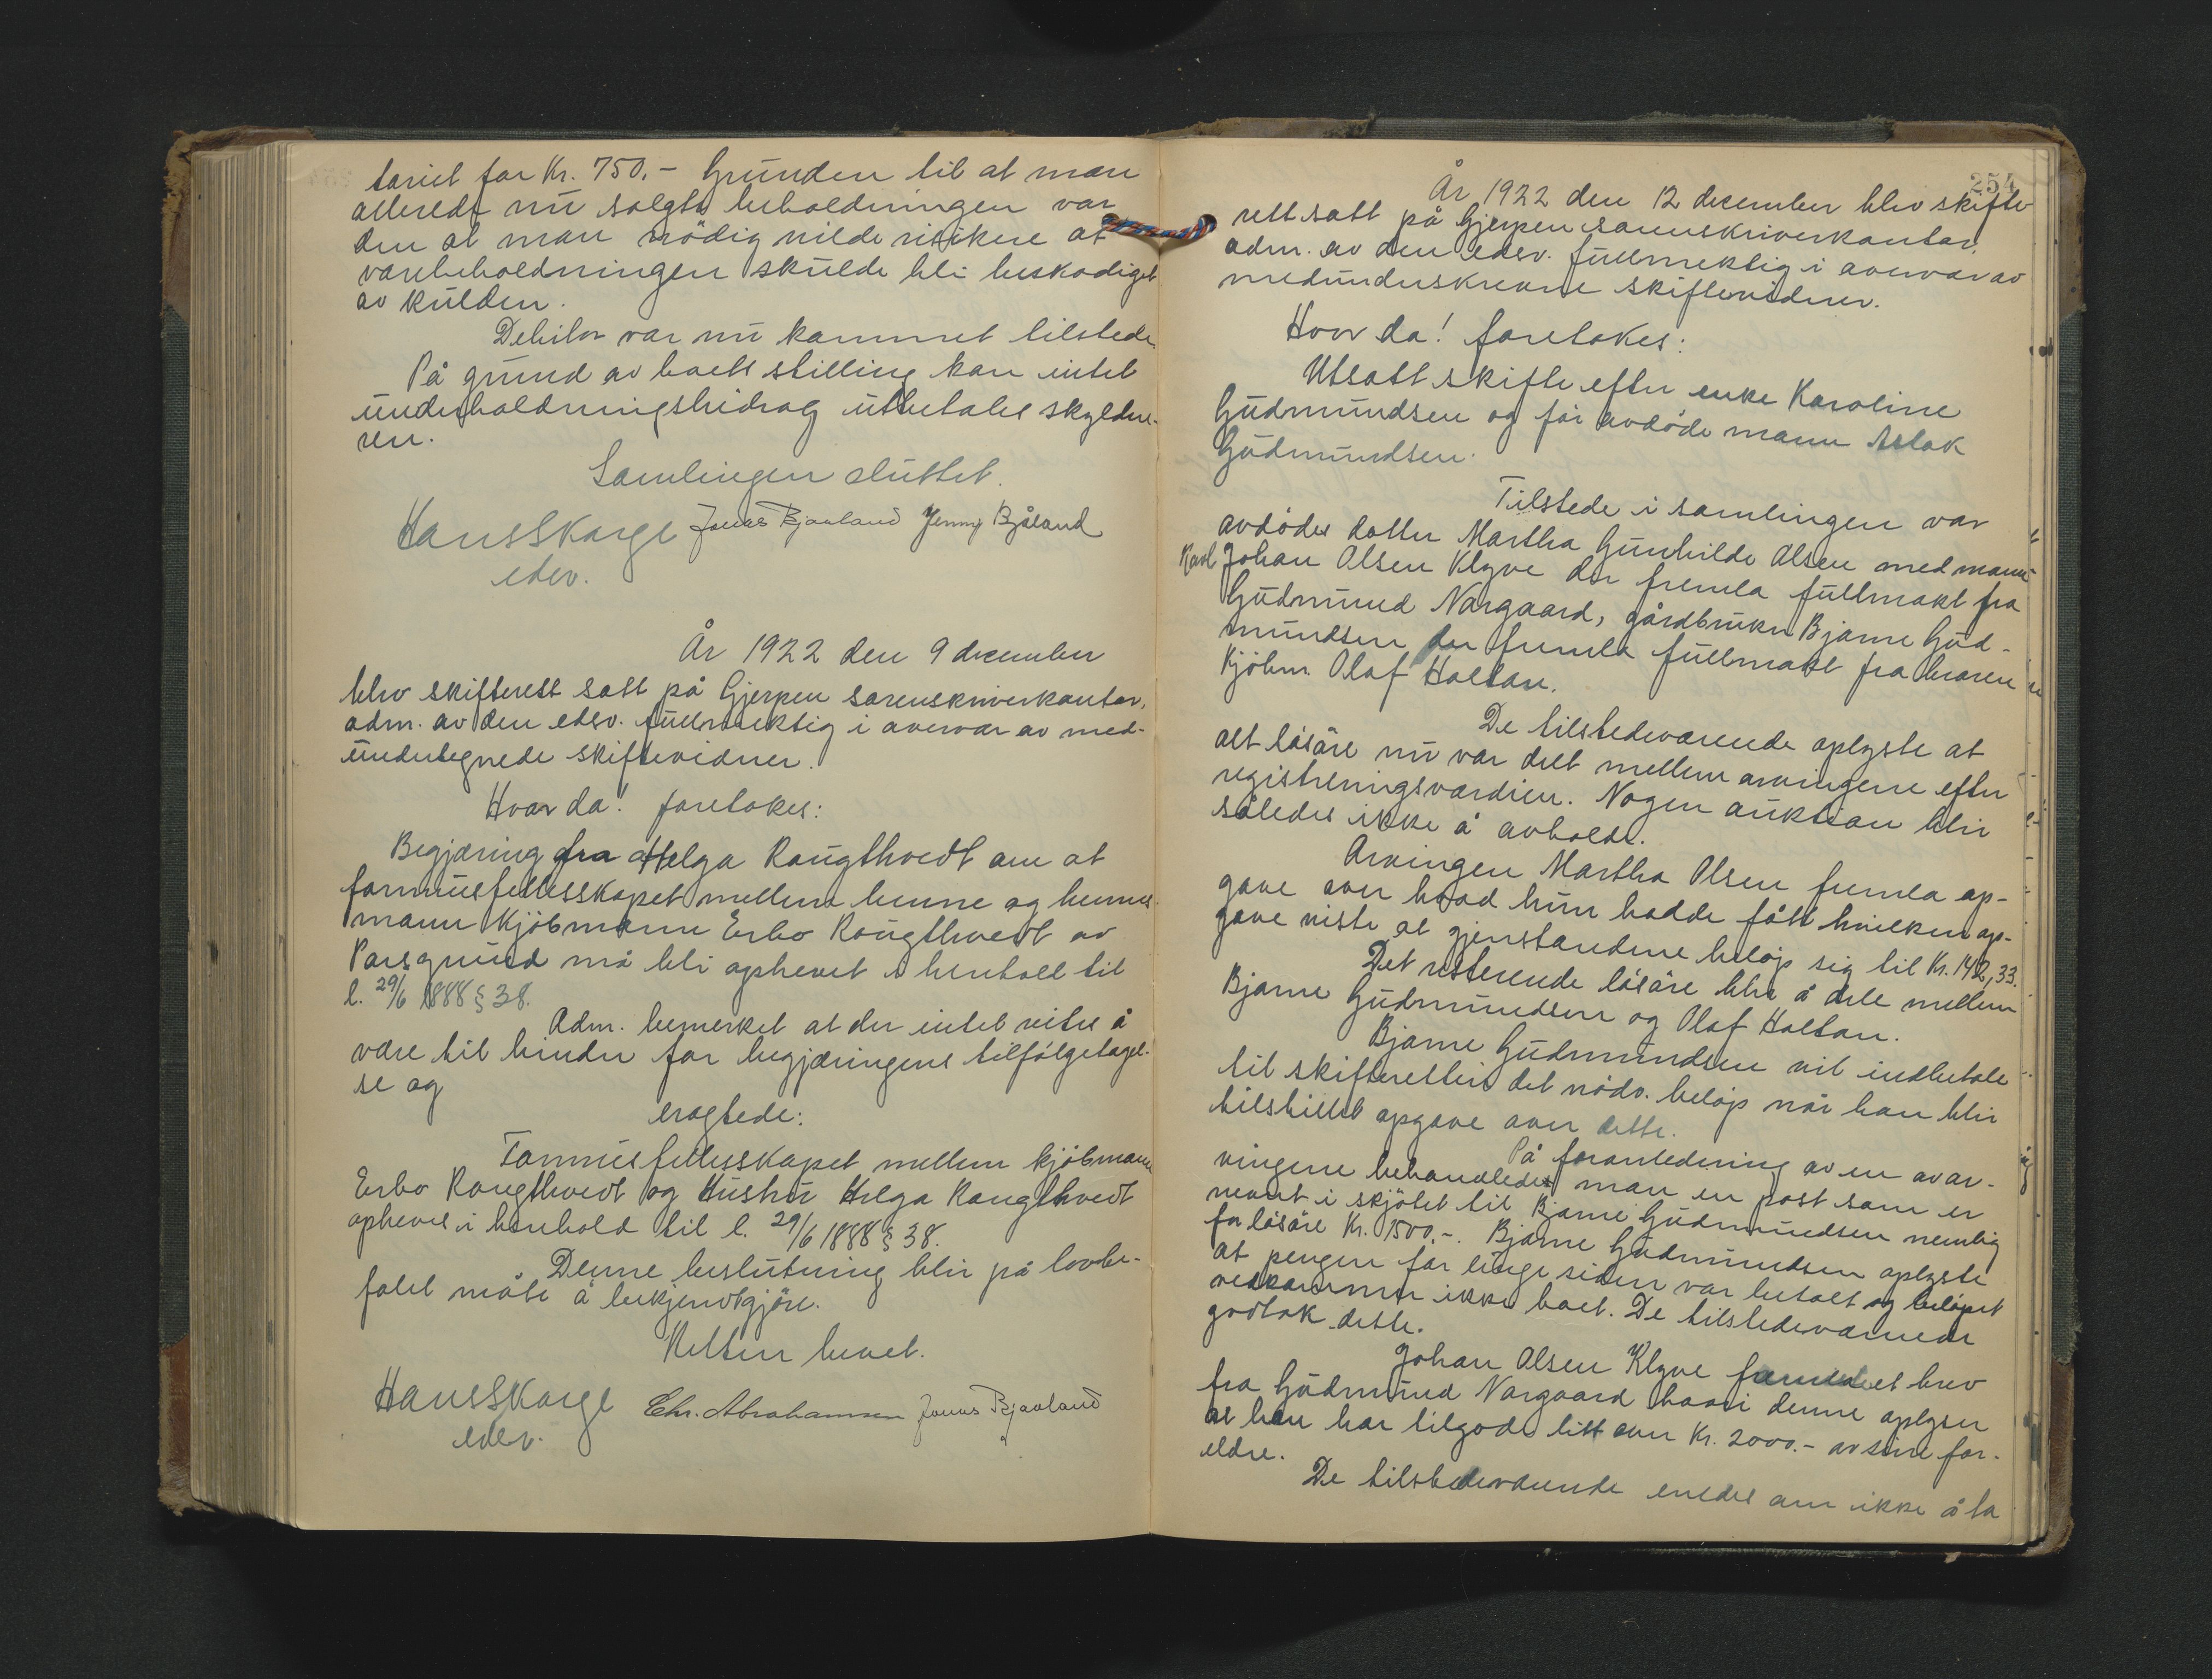 tariet for Kr. 750.- Grunden til at man
allerede nu solgte beholdningen var
den at man nödig vilde risikere at
varebeholdningen skulde bli beskadiget
av kulden.
Debitor var nu kommet tilstede.
På grund av boets stilling kan intet
underholdningsbidrag utbetales skyldne-
ren.
Samlingen sluttet.
Hans Skarge Jonas Bjaaland Jenny Bjåland
edsv.
År 1922 den 9 december
blev skifterett satt på Gjerpen sorenskriverkontor,
adm. av den edsv. fullmektig i overvær av med-
undertegnede skiftevidner.
Hvor da! foretokes:
Begjæring fra Helga Rougthvedt om at
formuesfellesskapet mellem henne og hennes
mann kjöbmann Erbo Rougthvedt av
Porsgrund må bli ophevet i henhold til
l. 29/6 1888 § 38.
Adm. bemerket at der intet vites å
være til hinder for begjæringens tilfölgetagel-
se og
eragtede:
Formuesfellesskapet mellem kjöbmann
Erbo Rougthvedt og Hustru Helga Rougthvedt
opheves i henhold til l. 29/6 1888 § 38.
Denne beslutning blir på lovbe-
falet måte å bekjendtgjöre.
Retten hevet.
Hans Skarge Chr. Abrahamsen Jonas Bjaaland
edsv.
254
År 1922 den 12 december blev skifte-
rett satt på Gjerpen sorenskriverkontor,
adm. av den edsv. fullmektig i overvær av
medunderskrevne skiftevidner.
Hvor da! foretokes:
Utsatt skifte efter enke Karoline
Gudmundsen og för avdöde mann Aslak
Gudmundsen.
Tilstede i samlingen var
avdödes datter Martha Gunhilde Olsen med mann
Karl Johan Olsen Klyve der fremla fullmakt fra
Gudmund Norgaard, gårdbruker Bjarne Gud-
mundsen der fremla fullmakt fra broren
Kjöbm. Olaf Holtan.
De tilstedeværende oplyste at
alt lösöre nu var delt mellem arvingene efter
registreringsværdien. Nogen auksion blir
således ikke å avholde.
Arvingen Martha Olsen fremla op-
gave over hvad hun hadde fått hvilken op-
gave viste at gjenstandene belöp sig til Kr. 142,33.
Det resterende lösöre blir å dele mellem
Bjarne Gudmundsen og Olaf Holtan.
Bjarne Gudmundsen vil indbetale
til skifteretten det nödv. belöp når han blir
tilstillet opgave over dette.
På foranledning av en av ar-
vingene behandledes man en post som er
nevnt i skjötet til Bjarne Gudmundsen nemlig
for lösöre Kr. 1500.-. Bjarne Gudmundsen oplyste
at pengene for lenge siden var betalt og belöpet
vedkommer ikke boet. De tilstedeværende
godtok dette.
Johan Olsen Klyve et brev
fra Gudmund Norgaard hvori denne oplyser
at han har tilgode litt over Kr. 2000.- av sine for-
eldre.
De tilstedeværende enedes om ikke å ta